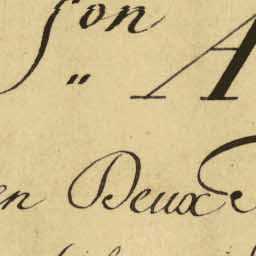 ſon A
en Deux